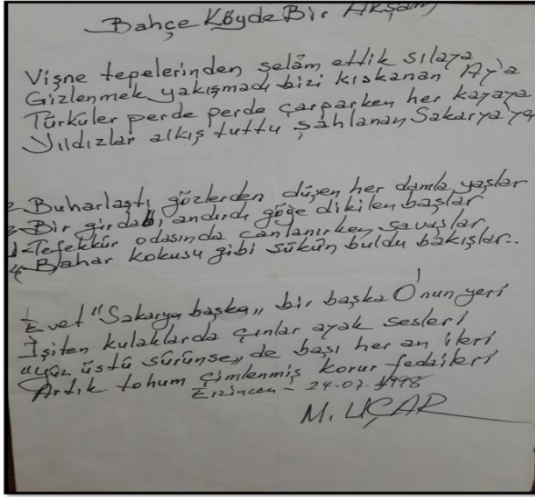 Bahçe Köyde Bir Akşam
Vişne tepelerinden selâm ettik sılaya
Gizlenmek yakışmadı bizi kıskanan Ay'a
Türküler perde perde çarparken her kayaya
Yıldızlar alkış tuttu şahlanan Sakarya'ya
2- Buharlaştı gözlerden düşen her damla yaşlar
3- Bir girdabı andırdı göğe dikilen başlar
1- Tefekkür odasında canlanırken savaşlar
4- Bahar kokusu gibi sükûn buldu bakışlar..
Evet "Sakarya başka" bir başka O'nun yeri
İşiten kulaklarda çınlar ayak sesleri
"yüz üstü sürünse" de başı her an ileri
Artık tohum çimlenmiş korur fedaileri
Erzincan - 24.07.1998
M. UÇAR